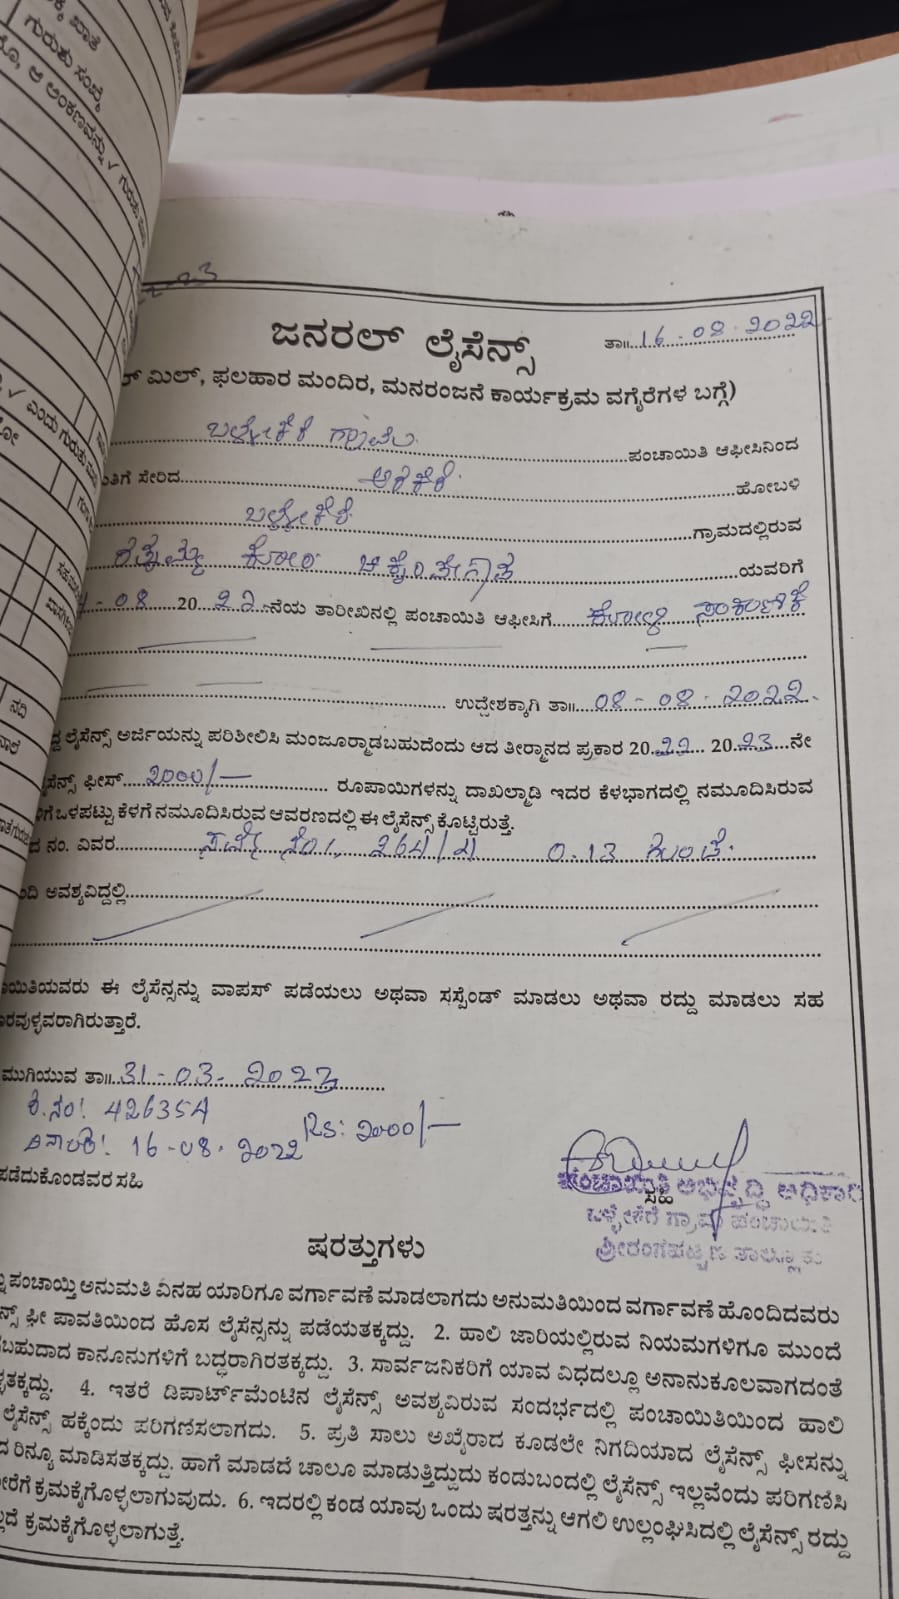 ಕ್ಕೆ ಖಾತೆ
ಗುರುತು ಸಂಖ್ಯೆ
ಆ ಅಂಕಣವನ್ನು ✓ ಗುರುತು
✓ ಎಂದು ಗುರುತು
ನದಿ
22-23
ಜನರಲ್ ಲೈಸೆನ್ಸ್
ತಾ॥ 16.08.2022
ಮಿಲ್, ಫಲಹಾರ ಮಂದಿರ, ಮನರಂಜನೆ ಕಾರ್ಯಕ್ರಮ ವಗೈರೆಗಳ ಬಗ್ಗೆ)
ಬಳ್ಳೇಕೆರೆ ಗ್ರಾಮ ಪಂಚಾಯಿತಿ ಆಫೀಸಿನಿಂದ
ತಿಗೆ ಸೇರಿದ ಅರಕೆರೆ ಹೋಬಳಿ
ಬಳ್ಳೇಕೆರೆ ಗ್ರಾಮದಲ್ಲಿರುವ
ರತ್ನಮ್ಮ ಕೋಂ ಯವರಿಗೆ
-08 2022 ನೆಯ ತಾರೀಖಿನಲ್ಲಿ ಪಂಚಾಯಿತಿ ಆಫೀಸಿಗೆ ಕೋಳಿ ಸಾಕಾಣಿಕೆ
ಉದ್ದೇಶಕ್ಕಾಗಿ ತಾ॥ 08-08-2022
ದ್ದ ಲೈಸೆನ್ಸ್ ಅರ್ಜಿಯನ್ನು ಪರಿಶೀಲಿಸಿ ಮಂಜೂರ್ಮಾಡಬಹುದೆಂದು ಆದ ತೀರ್ಮಾನದ ಪ್ರಕಾರ 2022 2023 ನೇ
ಸೆನ್ಸ್ ಫೀಸ್ 2000/- ರೂಪಾಯಿಗಳನ್ನು ದಾಖಲ್ಮಾಡಿ ಇದರ ಕೆಳಭಾಗದಲ್ಲಿ ನಮೂದಿಸಿರುವ
ಗೆ ಒಳಪಟ್ಟು ಕೆಳಗೆ ನಮೂದಿಸಿರುವ ಆವರಣದಲ್ಲಿ ಈ ಲೈಸೆನ್ಸ್ ಕೊಟ್ಟಿರುತ್ತೆ.
ದ ನಂ. ವಿವರ ಸರ್ವೆ ನಂ. 264/ 0.13 ಗುಂಟೆ.
ದಿ ಅವಶ್ಯವಿದ್ದಲ್ಲಿ
ಯಿತಿಯವರು ಈ ಲೈಸೆನ್ಸನ್ನು ವಾಪಸ್ ಪಡೆಯಲು ಅಥವಾ ಸಸ್ಪೆಂಡ್ ಮಾಡಲು ಅಥವಾ ರದ್ದು ಮಾಡಲು ಸಹ
ರವುಳ್ಳವರಾಗಿರುತ್ತಾರೆ.
ಮುಗಿಯುವ ತಾ॥ 31-03-2023
ರ.ನಂ: 426354
ದಿನಾಂಕ: 16-08-2022 Rs: 2000/-
ಪಡೆದುಕೊಂಡವರ ಸಹಿ
ಸಹಿ
ಪಂಚಾಯತಿ ಅಭಿವೃದ್ಧಿ ಅಧಿಕಾರಿ
ಬಳ್ಳೇಕೆರೆ ಗ್ರಾಮ ಪಂಚಾಯತಿ
ಶ್ರೀರಂಗಪಟ್ಟಣ ತಾಲ್ಲೂಕು
ಷರತ್ತುಗಳು
ಪಂಚಾಯ್ತಿ ಅನುಮತಿ ವಿನಹ ಯಾರಿಗೂ ವರ್ಗಾವಣೆ ಮಾಡಲಾಗದು ಅನುಮತಿಯಿಂದ ವರ್ಗಾವಣೆ ಹೊಂದಿದವರು
ನ್ಸ್ ಫೀ ಪಾವತಿಯಿಂದ ಹೊಸ ಲೈಸೆನ್ಸನ್ನು ಪಡೆಯತಕ್ಕದ್ದು. 2. ಹಾಲಿ ಜಾರಿಯಲ್ಲಿರುವ ನಿಯಮಗಳಿಗೂ ಮುಂದೆ
ಬಹುದಾದ ಕಾನೂನುಗಳಿಗೆ ಬದ್ಧರಾಗಿರತಕ್ಕದ್ದು. 3. ಸಾರ್ವಜನಿಕರಿಗೆ ಯಾವ ವಿಧದಲ್ಲೂ ಅನಾನುಕೂಲವಾಗದಂತೆ
ತಕ್ಕದ್ದು. 4. ಇತರೆ ಡಿಪಾರ್ಟ್‌ಮೆಂಟಿನ ಲೈಸೆನ್ಸ್ ಅವಶ್ಯವಿರುವ ಸಂದರ್ಭದಲ್ಲಿ ಪಂಚಾಯಿತಿಯಿಂದ ಹಾಲಿ
ಲೈಸೆನ್ಸ್ ಹಕ್ಕೆಂದು ಪರಿಗಣಿಸಲಾಗದು. 5. ಪ್ರತಿ ಸಾಲು ಅಖೈರಾದ ಕೂಡಲೇ ನಿಗದಿಯಾದ ಲೈಸೆನ್ಸ್ ಫೀಸನ್ನು
ದ ರಿನ್ಯೂ ಮಾಡಿಸತಕ್ಕದ್ದು. ಹಾಗೆ ಮಾಡದೆ ಚಾಲೂ ಮಾಡುತ್ತಿದ್ದುದು ಕಂಡುಬಂದಲ್ಲಿ ಲೈಸೆನ್ಸ್ ಇಲ್ಲವೆಂದು ಪರಿಗಣಿಸಿ
ರೆಗೆ ಕ್ರಮಕೈಗೊಳ್ಳಲಾಗುವುದು. 6. ಇದರಲ್ಲಿ ಕಂಡ ಯಾವು ಒಂದು ಷರತ್ತನ್ನು ಆಗಲಿ ಉಲ್ಲಂಘಿಸಿದಲ್ಲಿ ಲೈಸೆನ್ಸ್ ರದ್ದು
ಲ್ಲದೆ ಕ್ರಮಕೈಗೊಳ್ಳಲಾಗುತ್ತೆ.